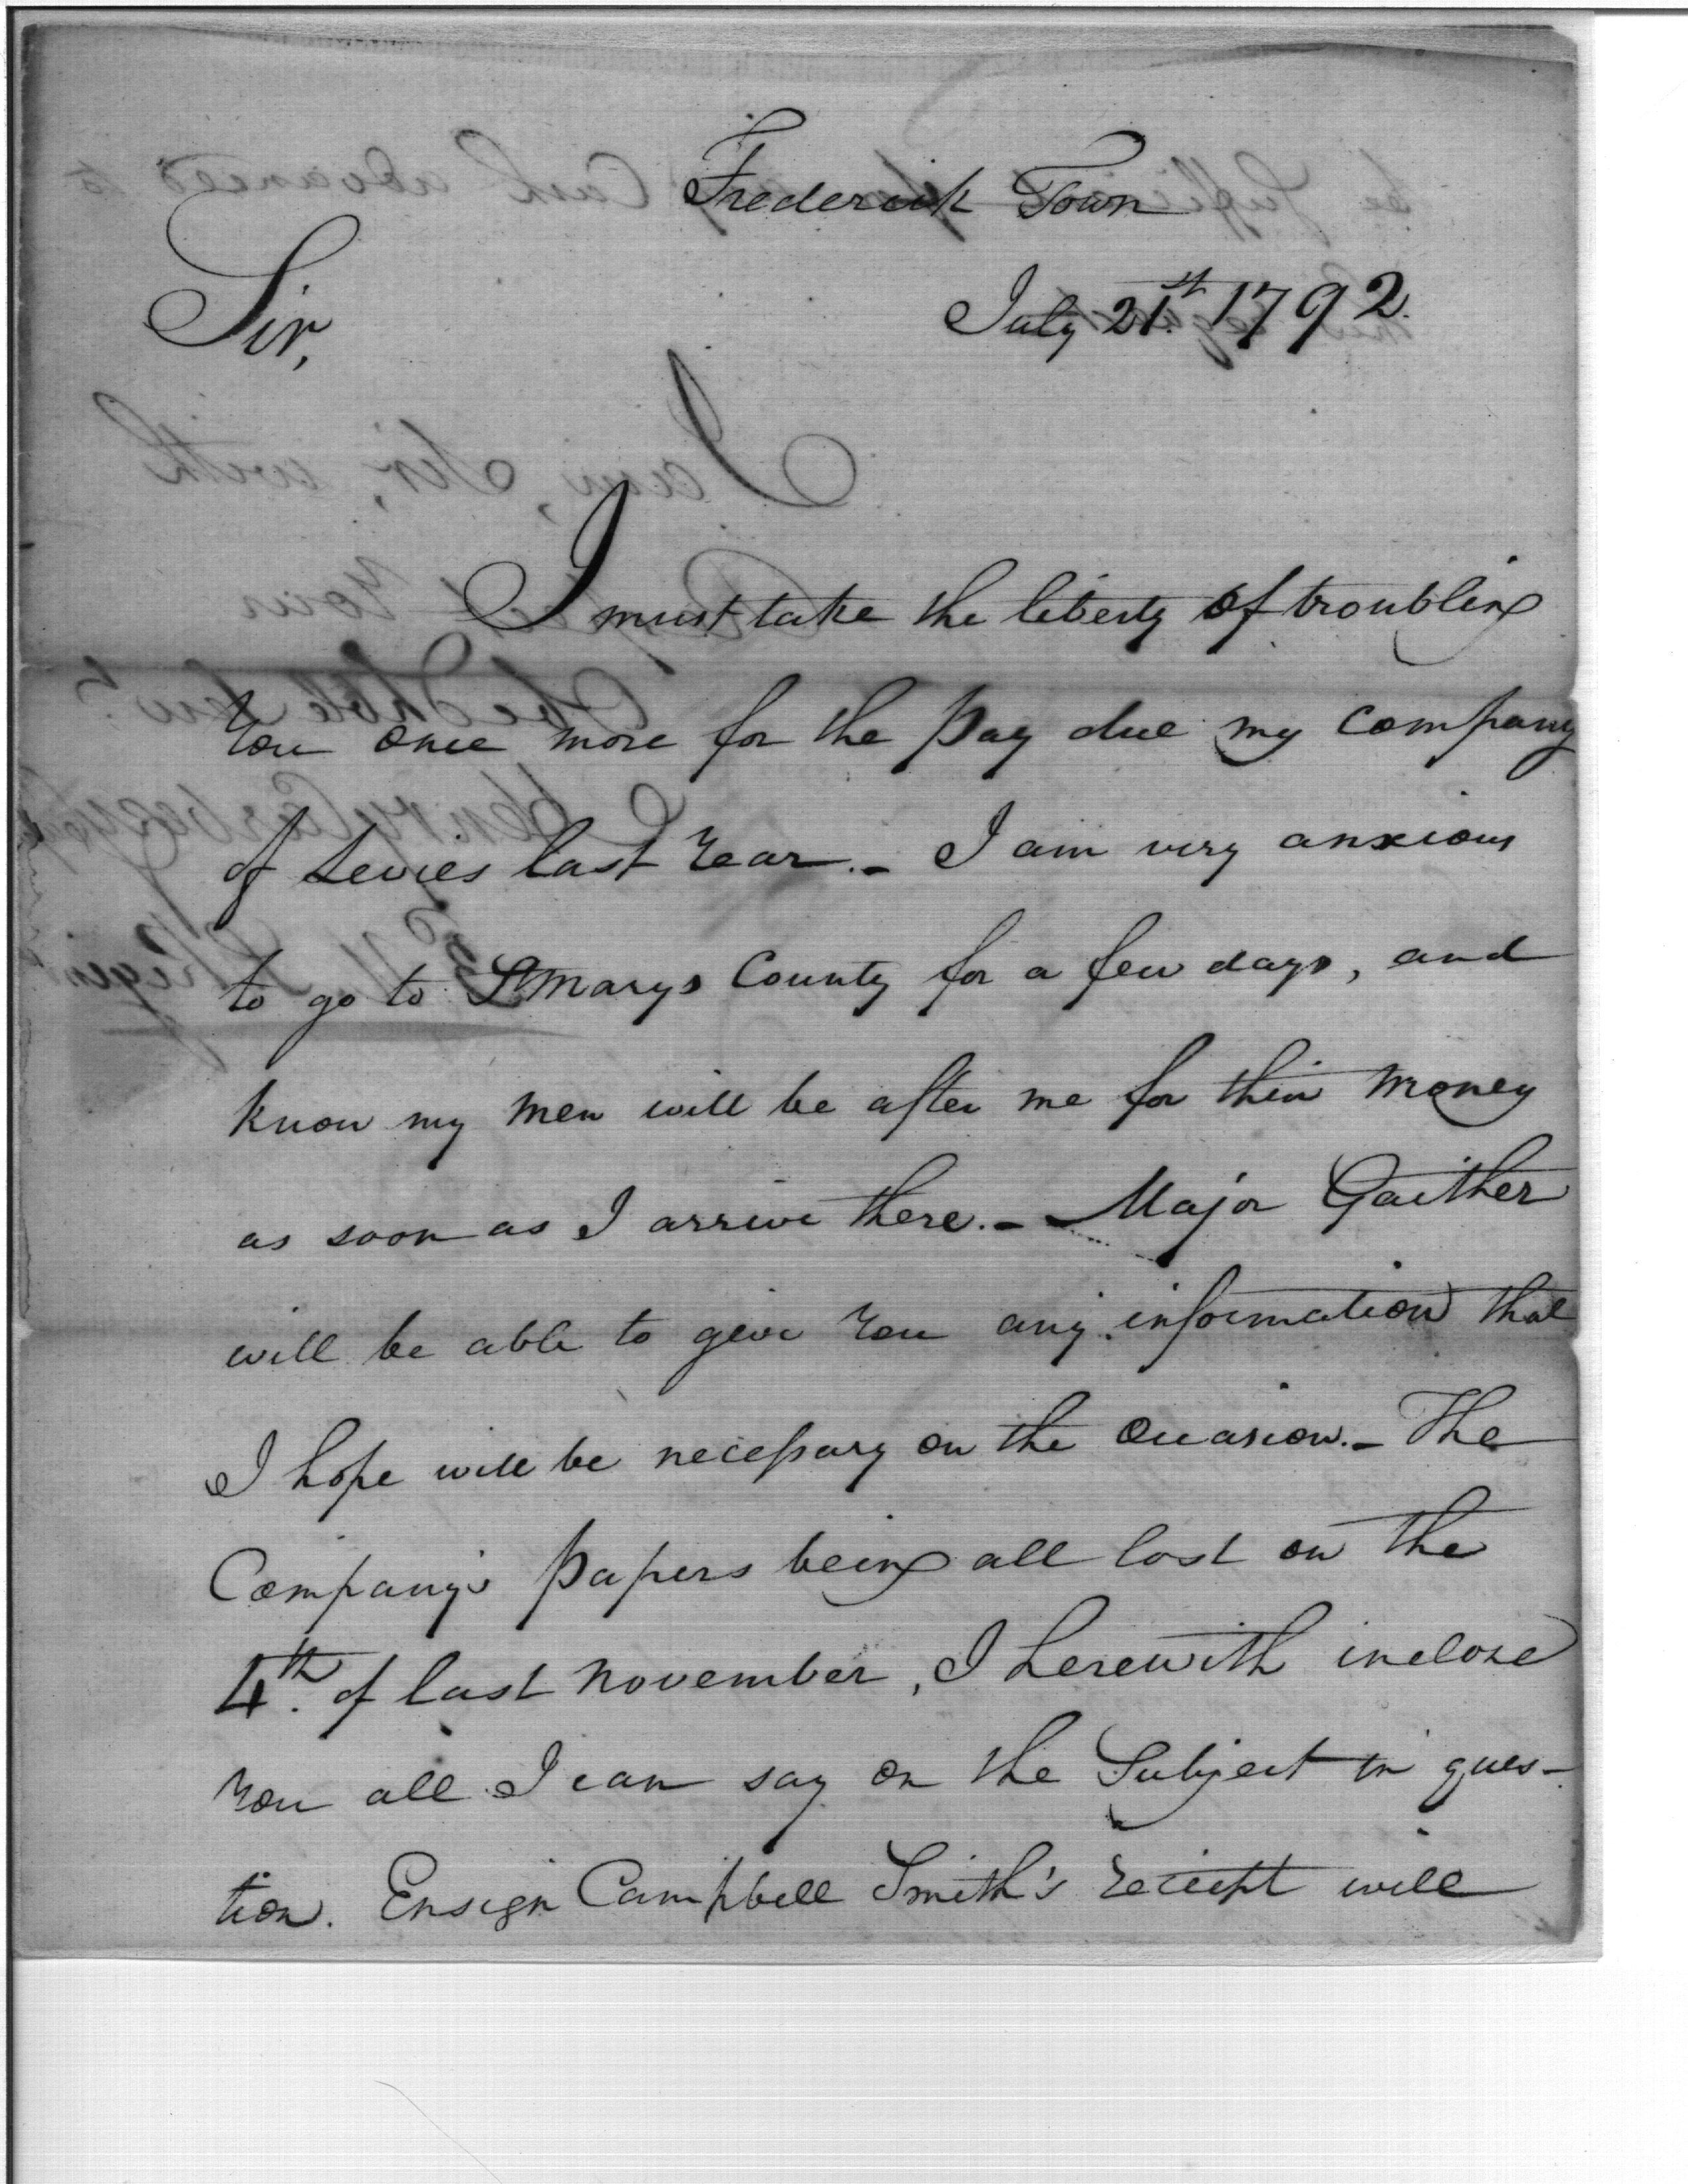 Frederick Town
July 21.st 1792.
Sir,
I must take the liberty of troubling
You once more for the pay due my company
of Levies last Year.- I am very anxious
to go to St Marys County for a few days, and
know my men will be after me for their money
as soon as I arrive there.- Major Gaither
will be able to give You any information that
I hope will be necessary on the Occasion.- The
Company's papers being all lost on the
4th. of last November, I herewith inclose
You all I can say on the Subject in ques-
tion. Ensign Campbell Smith's receipt will